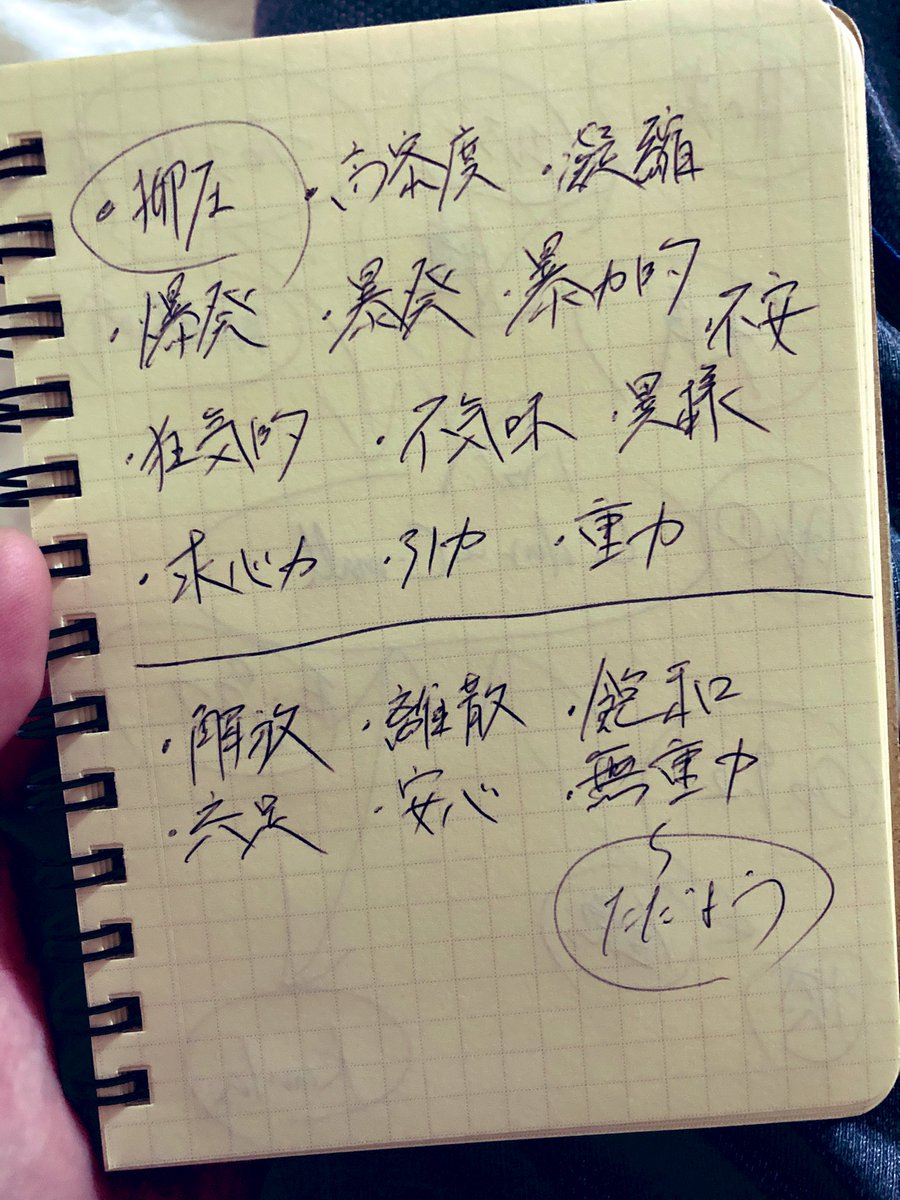 ・抑圧 ・高密度 ・凝縮
・爆発 ・暴発 ・暴力的 ・不安
・狂気的 ・不気味 ・異様
・求心力 ・引力 ・重力
・解放 ・離散 ・飽和
・充足 ・安心 ・無重力
ただよう